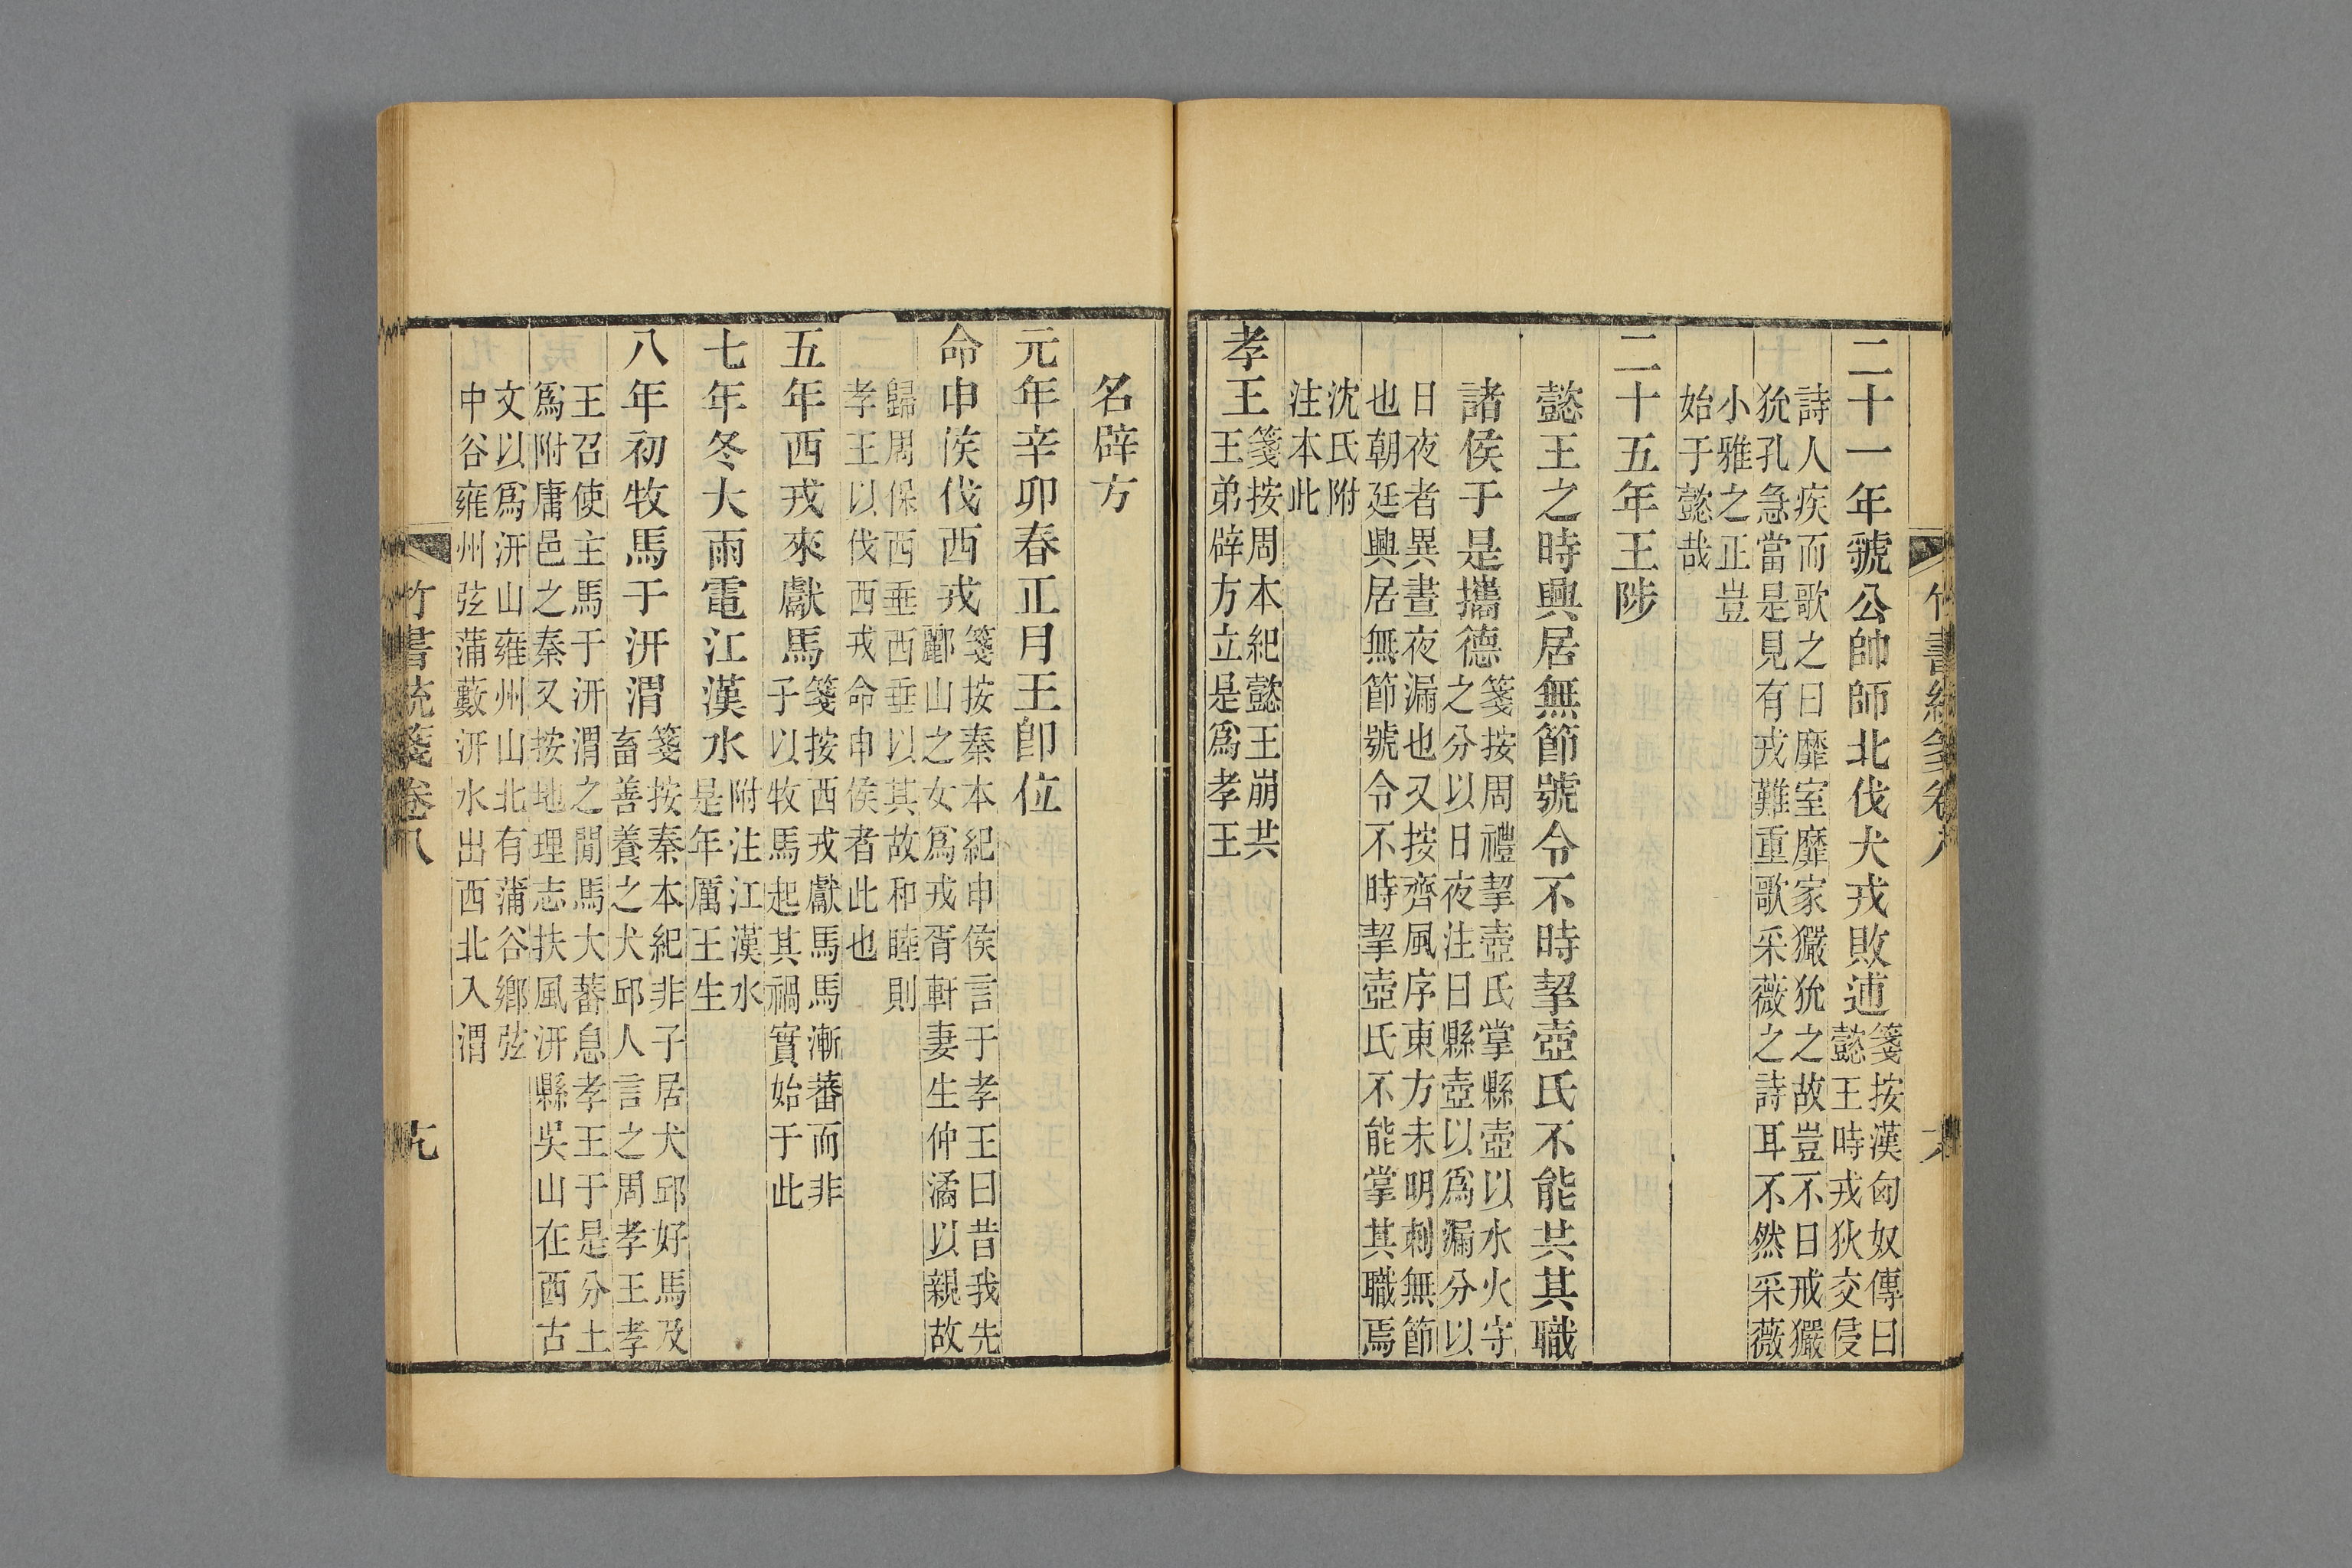 竹書統箋卷八
二十一年虢公帥師北伐犬戎敗逋箋按漢匈奴傳曰
懿王時戎狄交侵
詩人疾而歌之曰靡室靡家玁狁之故豈不日戒玁
狁孔急當是見有戎難重歌采薇之詩耳不然采薇
小雅之正豈
始于懿哉
二十五年王陟
懿王之時興居無節號令不時挈壺氏不能共其職
諸侯于是攜德箋按周禮挈壺氏掌縣壺以水火守
之分以日夜注曰縣壺以爲漏分以
日夜者異晝夜漏也又按齊風序東方未明刺無節
也朝廷興居無節號令不時挈壺氏不能掌其職焉
沈氏附
注本此
孝王箋按周本紀懿王崩共
王弟辟方立是爲孝王
名辟方
元年辛卯春正月王卽位
命申侯伐西戎箋按秦本紀申侯言于孝王曰昔我先
酈山之女爲戎胥軒妻生仲潏以親故
歸周保西垂西垂以其故和睦則
孝王以伐西戎命申侯者此也
五年西戎來獻馬箋按西戎獻馬馬漸蕃而非
子以牧馬起其禍實始于此
七年冬大雨電江漢水附注江漢水
是年厲王生
八年初牧馬于汧渭箋按秦本紀非子居犬邱好馬及
畜善養之犬邱人言之周孝王孝
王召使主馬于汧渭之閒馬大蕃息孝王于是分土
爲附庸邑之秦又按地理志扶風汧縣吳山在西古
文以爲汧山雍州山北有蒲谷鄉弦
中谷雍州弦蒲藪汧水出西北入渭
竹書統箋卷八